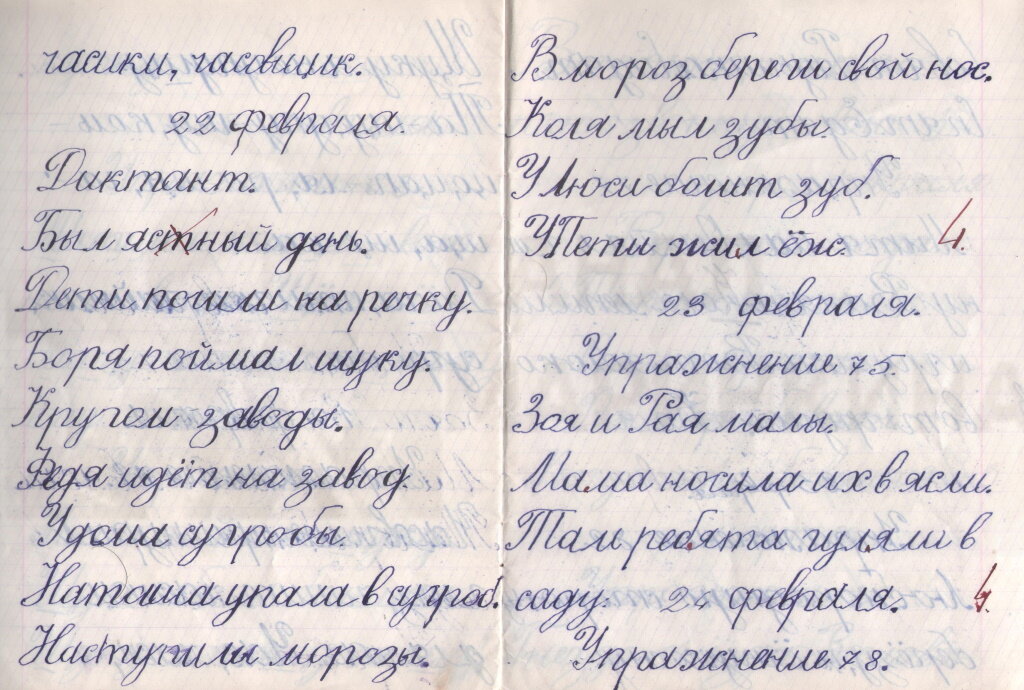 часики, часовщик.
22 февраля.
Диктант.
Был ястный день.
Дети пошли на речку.
Боря поймал щуку.
Кругом заводы.
Федя идёт на завод
У дома сугробы
Наташа упала в сугроб.
Наступили морозы.
В мороз береги свой нос.
Коля мыл зубы.
У Люси болит зуб.
У Пети жил ёж. 4.
23 февраля.
Упражнение 75.
Зоя и Рая малы.
Мама носила их в ясли.
Там ребята гуляли в
саду. 24 февраля. 4.
Упражнение 78.